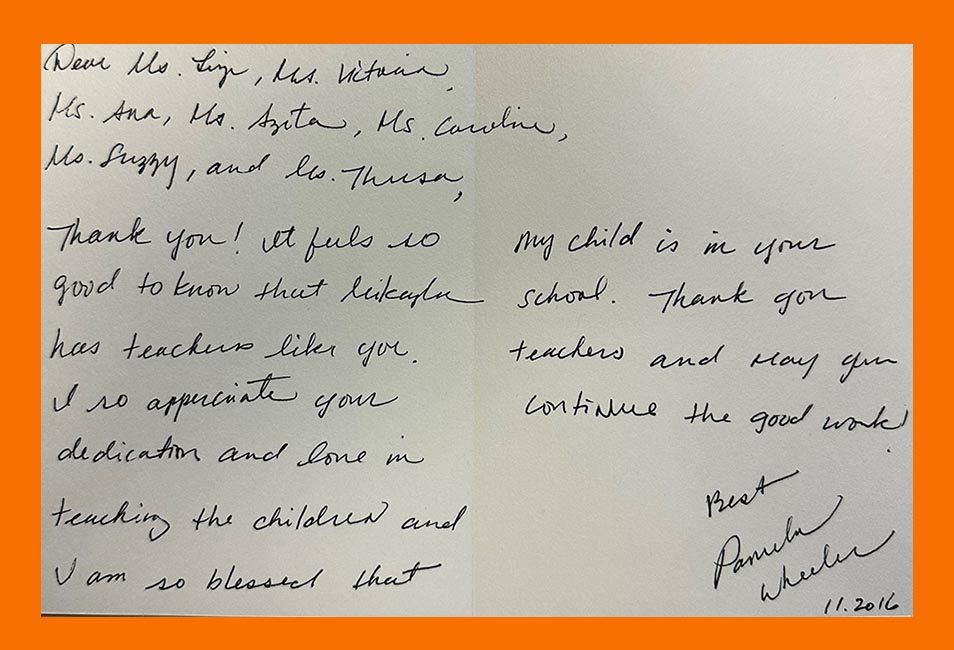 Dear Ms. Ms. Victoria,
Ms. Ana, Ms. Azita, Ms. Caroline,
Ms. Suzzy, and Ms. Theresa,
Thank you! It feels so
good to know that Mikayla
has teachers like you.
I so appreciate your
dedication and love in
teaching the children and
I am so blessed that
my child is in your
school. Thank you
teachers and may you
continue the good work!
Best
Pamela
Wheeler
11.2016